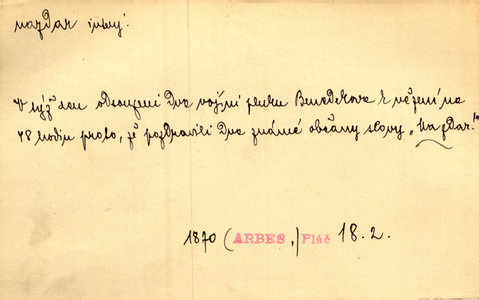 nazdar interj.
V týž den odsouzeni dva vojíni pluku Benedekova k vězení na
48 hodin proto, že pozdravili dva známé občany slovy „Na zdar!"
1870 (ARBES,) Pláč 18.2.